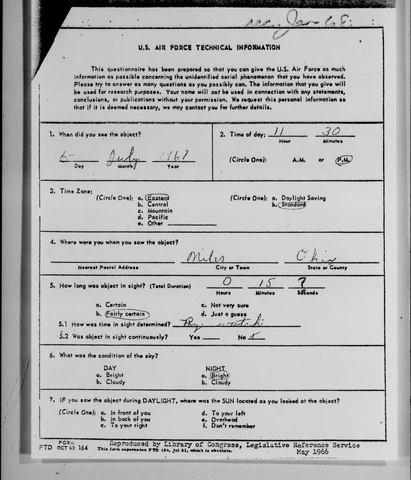 rec. Jan 68.
U.S. AIR FORCE TECHNICAL INFORMATION
This questionnaire has been prepared so that you can give the U.S. Air Force as much
information as possible concerning the unidentified aerial phenomenon that you have observed.
Please try to answer as many questions as you possibly can. The information that you give will
be used for research purposes. Your name will not be used in connection with any statements,
conclusions, or publications without your permission. We request this personal information so
that if it is deemed necessary, we may contact you for further details.
1. When did you see the object?
July 1967
Day Month Year
2. Time of day: 11 30
Hour Minutes
(Circle One): A.M. or P.M.
3. Time Zone:
(Circle One): a. Eastern
b. Central
c. Mountain
d. Pacific
e. Other
(Circle One): a. Daylight Saving
b. Standard
4. Where were you when you saw the object?
Niles Ohio
Nearest Postal Address City or Town State or County
5. How long was object in sight? (Total Duration) 0 15 ?
Hours Minutes Seconds
a. Certain c. Not very sure
b. Fairly certain d. Just a guess
5.1 How was time in sight determined? By watch
5.2 Was object in sight continuously? Yes No
6. What was the condition of the sky?
DAY NIGHT
a. Bright a. Bright
b. Cloudy b. Cloudy
7. IF you saw the object during DAYLIGHT, where was the SUN located as you looked at the object?
(Circle One): a. In front of you d. To your left
b. In back of you e. Overhead
c. To your right f. Don't remember
FORM
FTD OCT 62 164
Reproduced by Library of Congress, Legislative Reference Service
This form supersedes FTD 164, Jul 61, which is obsolete.
May 1966